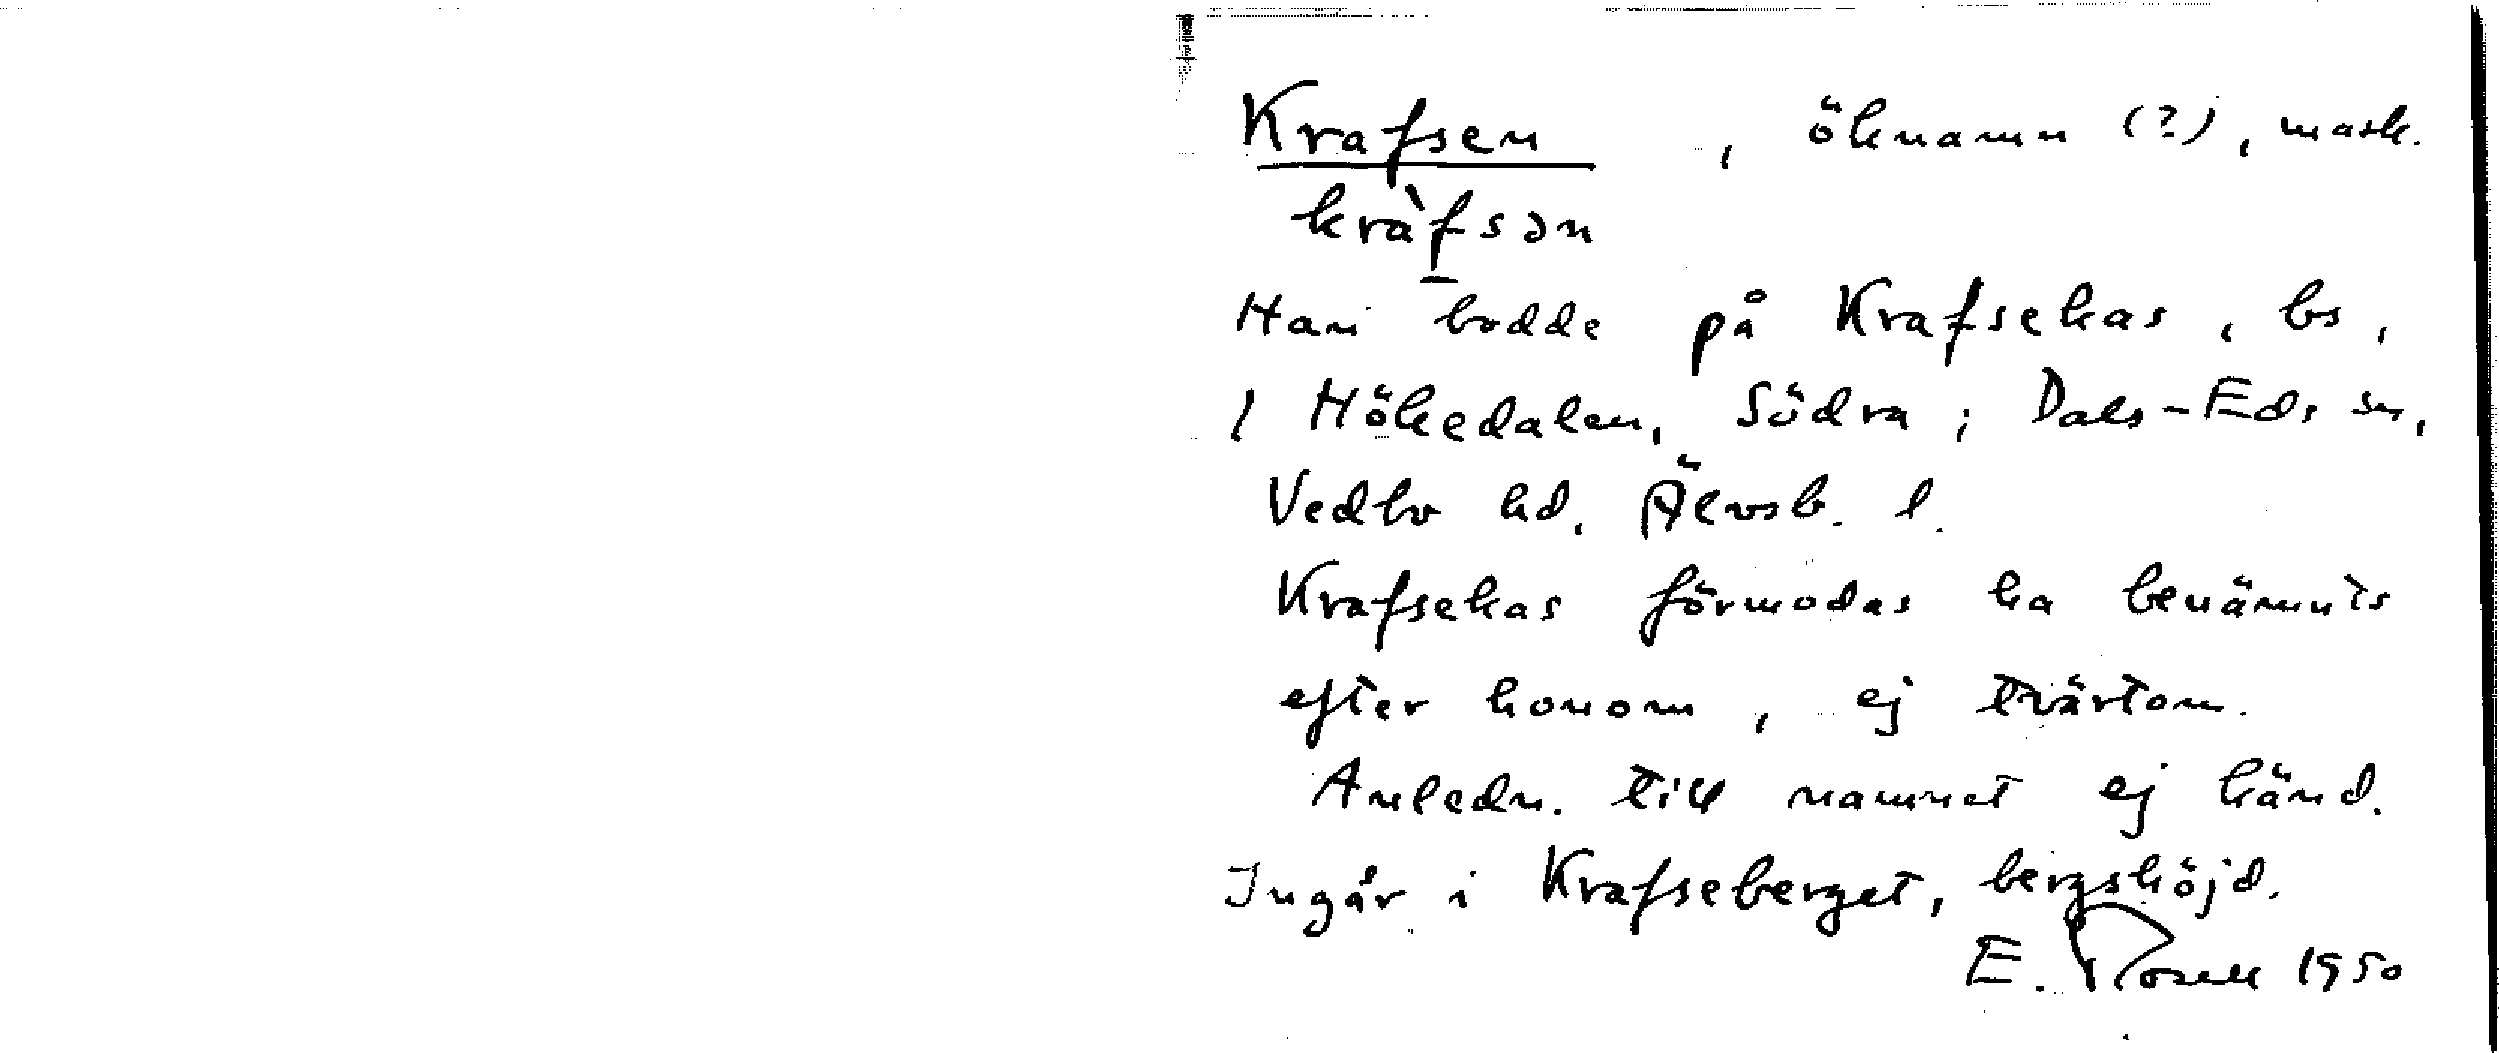 Krafsen , öknamn (?), mask.
kràfsən
Han bodde på Krafsekas, bs,
/ Hökedalen, Södra i Dals-Eds sn,
Vedbo hd. Älvsb. l.
Krafsekas förmodas ha benämnts
efter honom, ej tvärtom.
Anledn. till namnet ej känd.
Ingår i Krafseberget, bergshöjd.
E. Rosell 1950